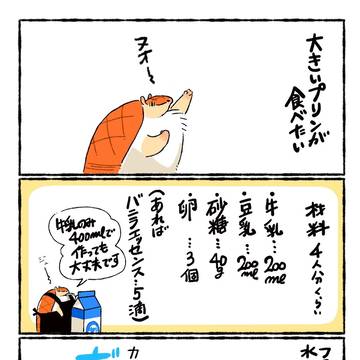 大きいプリンが
食べたい
ヌオー
材料 4人分くらい
・牛乳…200ml
・豆乳…200ml
・砂糖…40g
・卵…3個
(あれば
バニラエッセンス…5滴)
牛乳のみ
400mlで
作っても
大丈夫です